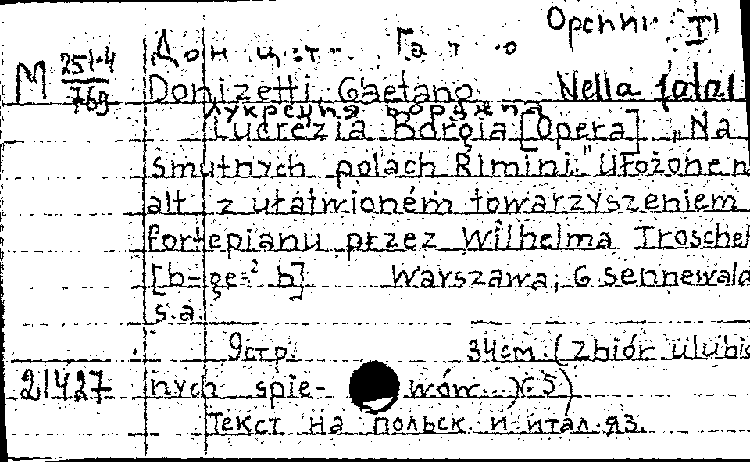 М 251-4/769
Доницетти Гаэтано
Donizetti Gaetano Nella fatal
Лукреция Борджиа
Lucrezia Borgia [Opera] „Na
smutnych polach Rimini." Ułożone n
alt z ułatwioném towarzyszeniem
fortepianu przez Wilhelma Troschel
Warszawa, G. Sennewald
s.a.
9 стр. 34 cm. (Zbiór ulubio
21427 nych śpie- wów...)
Текст на польск. и итал. яз.